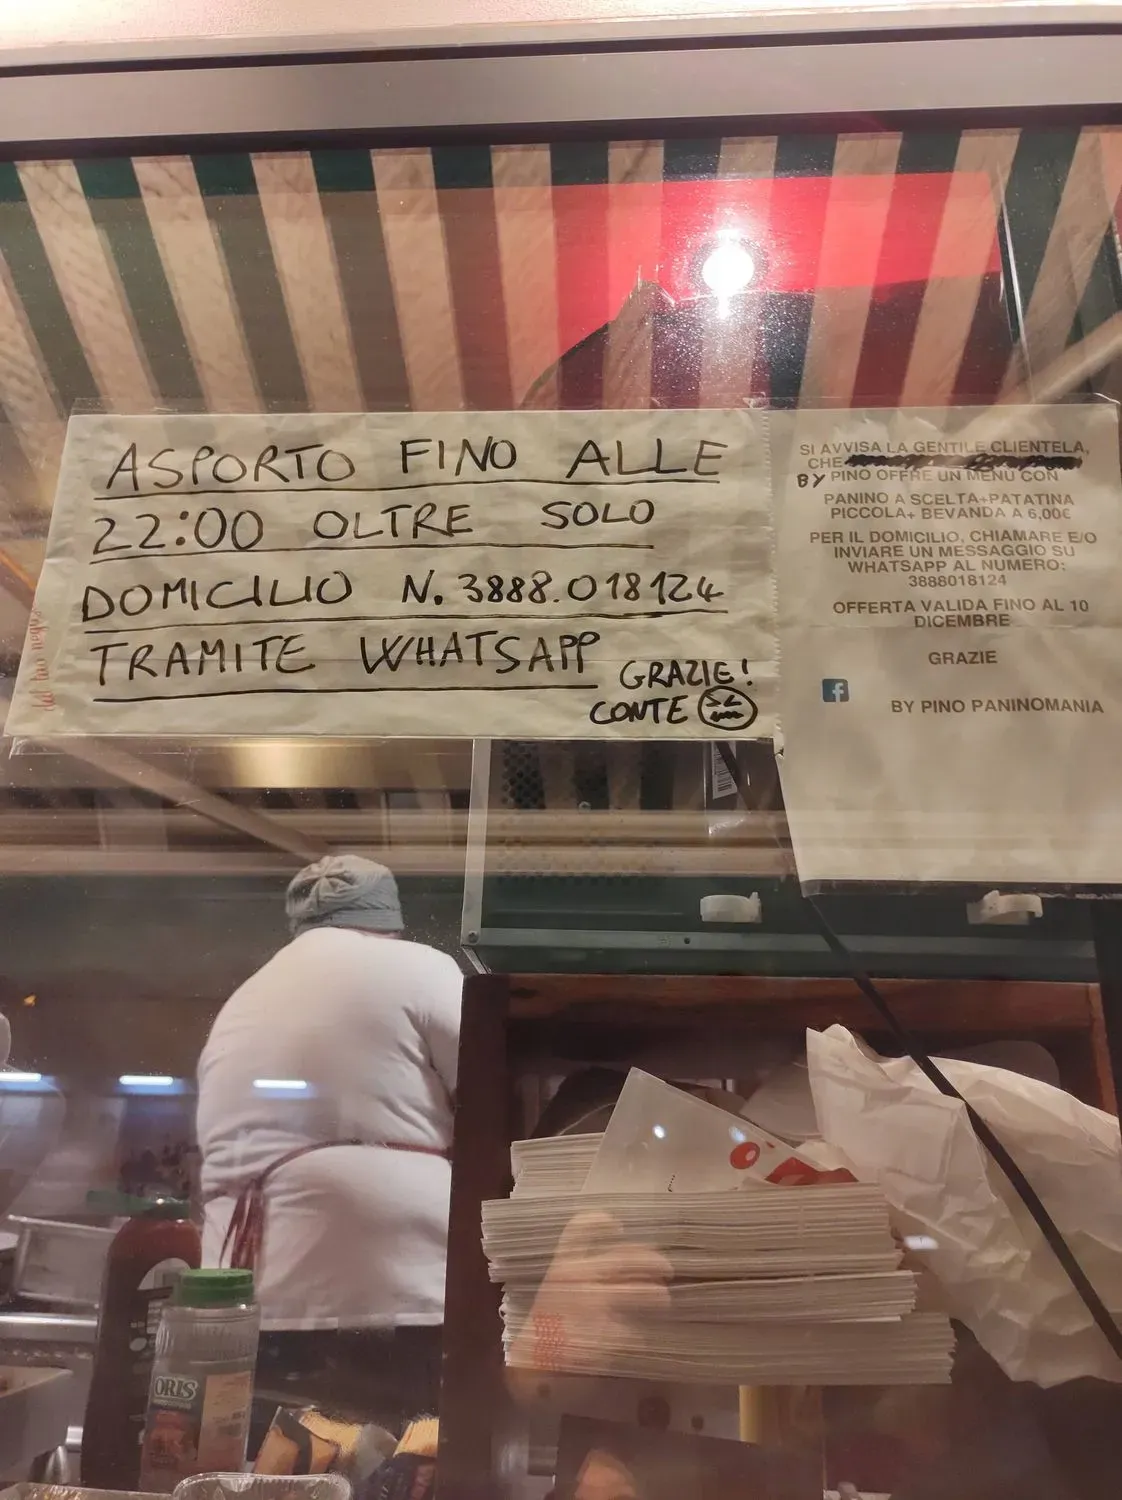 ASPORTO FINO ALLE
22:00 OLTRE SOLO
DOMICILIO N. 3888.018124
TRAMITE WHATSAPP
GRAZIE!
CONTE
SI AVVISA LA GENTILE CLIENTELA,
CHE
BY PINO OFFRE UN MENU CON
PANINO A SCELTA+PATATINA
PICCOLA+ BEVANDA A 6,00€
PER IL DOMICILIO, CHIAMARE E/O
INVIARE UN MESSAGGIO SU
WHATSAPP AL NUMERO:
3888018124
OFFERTA VALIDA FINO AL 10
DICEMBRE
GRAZIE
BY PINO PANINOMANIA
del tuo
ORIS